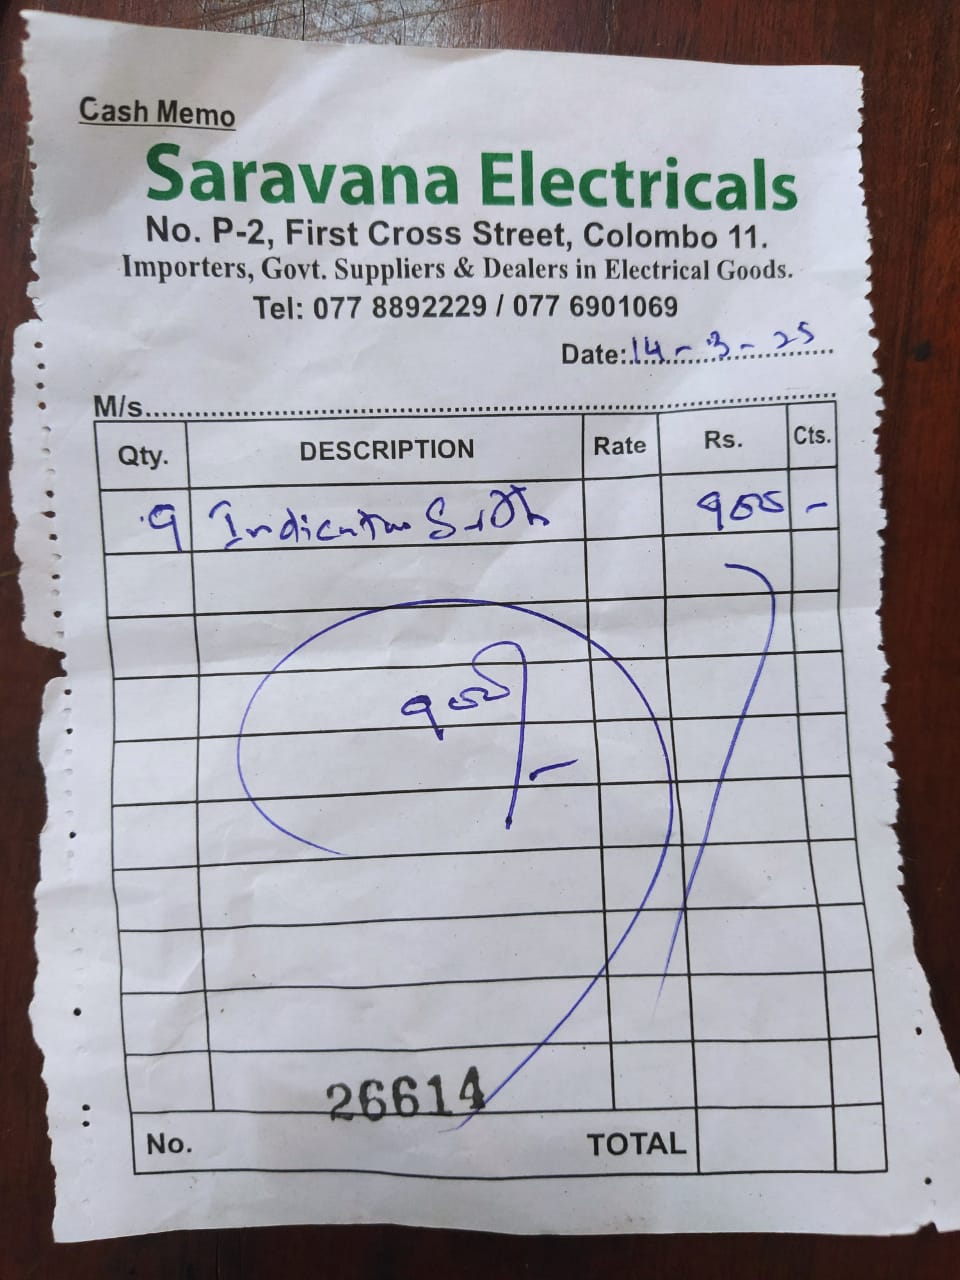 Cash Memo
Saravana Electricals
No. P-2, First Cross Street, Colombo 11.
Importers, Govt. Suppliers & Dealers in Electrical Goods.
Tel: 077 8892229 / 077 6901069
Date: 14 - 3 - 25
M/s
Qty. DESCRIPTION Rate Rs. Cts.
9 Indicator 900 -
900/-
26614
No. TOTAL